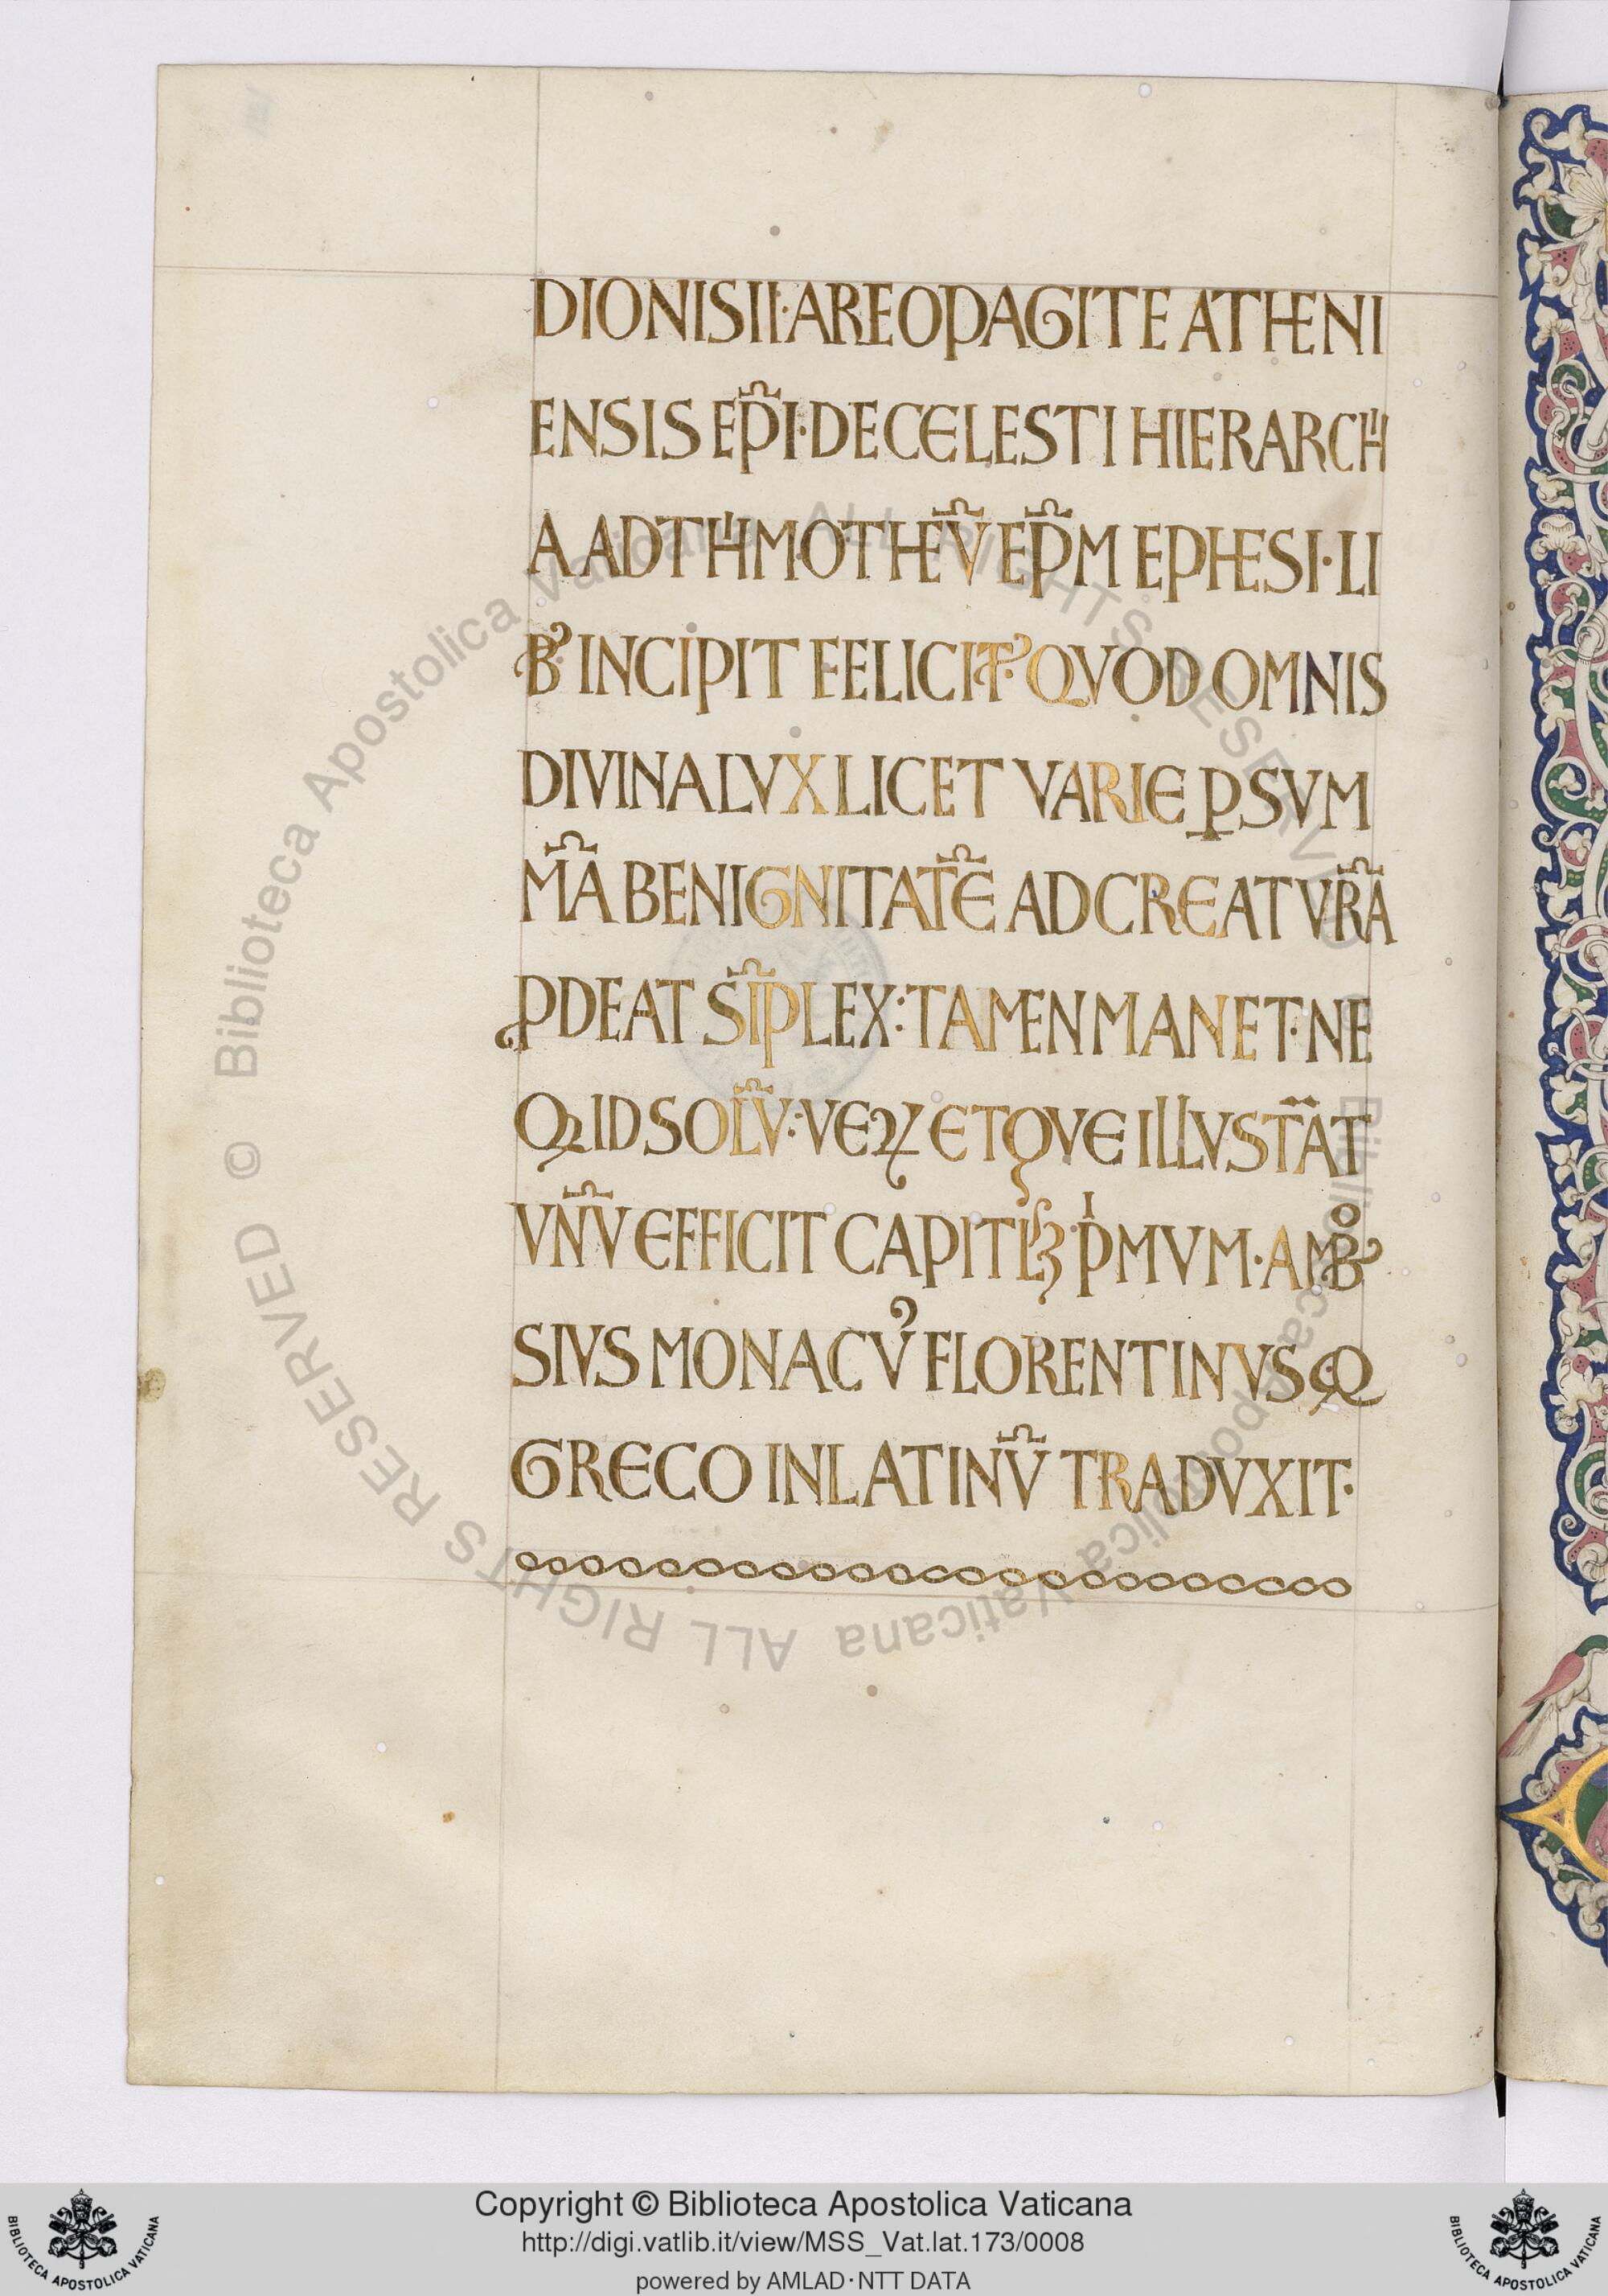 DIONISII·AREOPAGITE ATHENI
ENSIS EP̃I·DE CELESTI HIERARCHI
A AD THIMOTHEṼ EP̃M EPHESI·LI
Bꝰ INCIPIT FELICITꝰ· QVOD OMNIS
DIVINA LVX LICET VARIE ꝑ SVM
M̃A BENIGNITAT̃E AD CREATVR̃A
ꝓDEAT SĨPLEX: TAMEN MANET·NE
QꝫID SOL̃V: VEꝜ ETQVE ILLVSTÃAT
VÑV EFFICIT CAPITLꝫ·PⁱMVM·AMBᵒ
SIVS MONACVꝰ FLORENTINVS EQ
GRECO IN LATINṼ TRADVXIT·
© Biblioteca Apostolica Vaticana ALL RIGHTS RESERVED
© Biblioteca Apostolica Vaticana ALL RIGHTS RESERVED
Copyright © Biblioteca Apostolica Vaticana
http://digi.vatlib.it/view/MSS_Vat.lat.173/0008
powered by AMLAD·NTT DATA
BIBLIOTECA APOSTOLICA VATICANA
BIBLIOTECA APOSTOLICA VATICANA